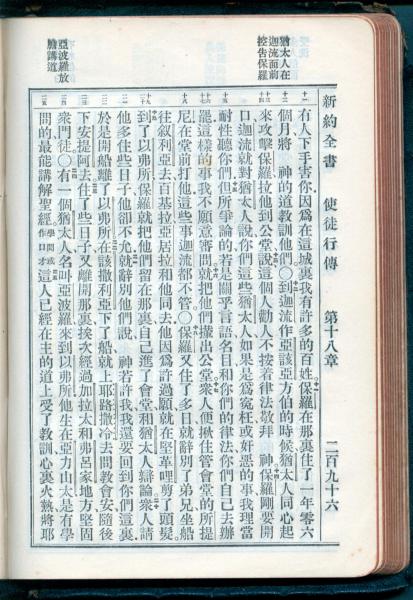 新約全書 使徒行傳 第十八章 二百九十六
猶太人在
迦流面前
控告保羅
亞波羅放
膽講道
有人下手害你因爲在這城裏我有許多的百姓保羅在那裏住了一年零六
個月將 神的道教訓他們○到迦流作亞該亞方伯的時候猶太人同心起
來攻擊保羅拉他到公堂說這個人勸人不按着律法敬拜 神保羅剛要開
口迦流就對猶太人說你們這些猶太人如果是爲寃枉或奸惡的事我理當
耐性聽你們但所爭論的若是關乎言語名目和你們的律法你們自己去辦
罷這樣的事我不願意審問就把他們攆出公堂衆人便揪住管會堂的所提
尼在堂前打他這些事迦流都不管○保羅又住了多日就辭別了弟兄坐船
往叙利亞去百基拉亞居拉和他同去他因爲許過願就在堅革哩剪了頭髮
到了以弗所保羅就把他們留在那裏自己進了會堂和猶太人辯論衆人請
他多住些日子他卻不允就辭別他們說 神若許我我還要回到你們這裏
於是開船離了以弗所在該撒利亞下了船就上耶路撒冷去問教會安隨後
下安提阿去住了些日子又離開那裏挨次經過加拉太和弗呂家地方堅固
衆門徒○有一個猶太人名叫亞波羅來到以弗所他生在亞力山太是有學
問的最能講解聖經學問或作口才這人已經在主的道上受了教訓心裏火熱將耶